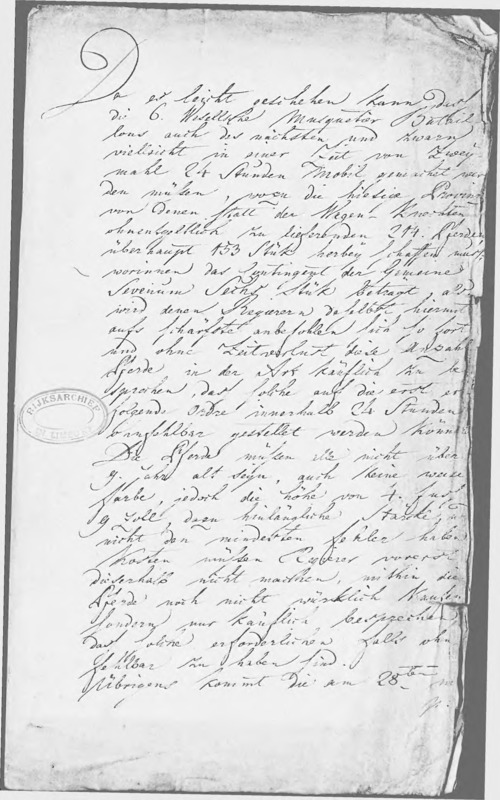 Da es leicht geschehen kann, das
die 6. Wesellsche Musquetier Batail
lons auch des nächsten und zwarn
vielleicht in einer Zeit von Zwey
mahl 24 Stunden Mobil gemachet wer
den müßen, wozu die hiesige Provinz
von denen statt der Wegen Knechten
ohnentgeltlich zu lieferenden 214. Pferden
überhaupt 153 Stük herbey schaffen muß,
worinnen das Contingent der Gemeine
Sevenum Sechs Stük betragt, als
wird denen Regierern daselbst hiermit
aufs schärfste anbefohlen sich so fort
und ohne Zeitverlust diese Anzahl
Pferde in der Art käuflich zu be
sprechen, das solche auf die erst er
folgende Ordre innerhalb 24 Stunden
ohnfehlbar gestellet werden können
Die Pferde müßen alle nicht über
9. Jahr alt seyn, auch keine weise
farbe, jedoch die höhe von 4. fus
9 Zoll, dazu hinlängliche Stärke, und
nicht den mindesten fehler haben
Kosten müßen Regierer vorerst
dieserhalb nicht machen, mithin die
Pferde noch nicht würklich Kaufen
sondern nur käuflich besprechen
das solche erforderlichen falls ohn
fehlbar zu haben sind.
Übrigens kommt die am 28ten
RIJKSARCHIEF
IN LIMBURG